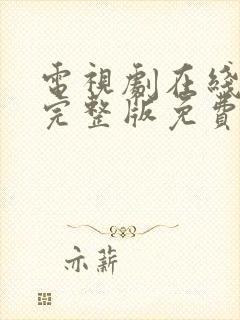 電視劇在綫
完整版免費
亦薪